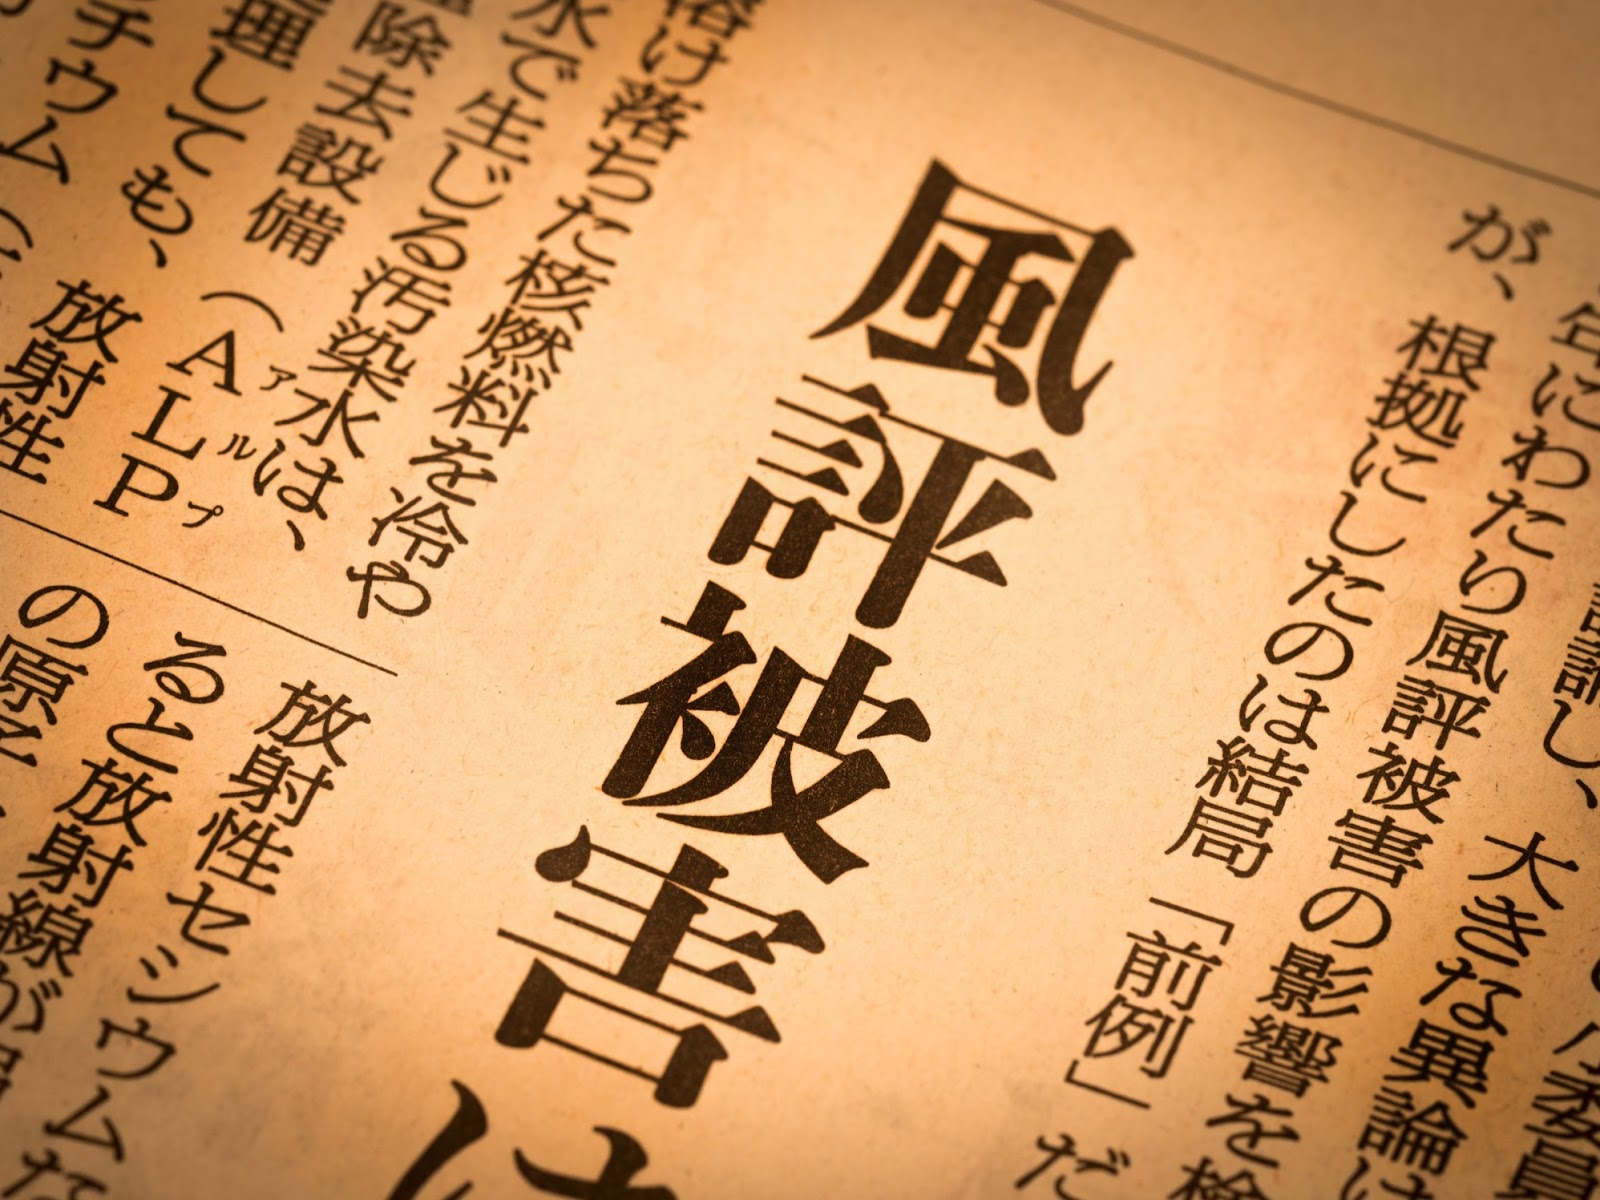 員
議論し、
大きな異論は
年にわたり風評被害の影響を検
が、根拠にしたのは結局「前例」だ
風評被害は
溶け落ちた核燃料を冷や
水で生じる汚染水は、
除去設備（ALP
アルプ
理しても、放射性
チウム（
放射性セシウム
ると放射線が
の原子